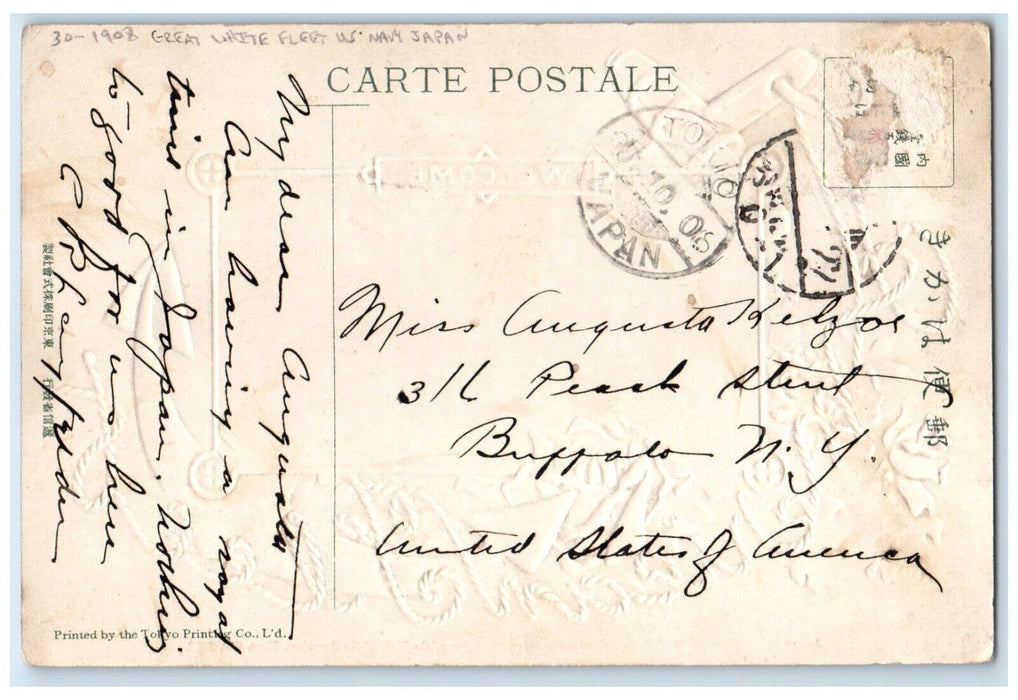 30-1908 GREAT WHITE FLEET US. NAVY JAPAN
CARTE POSTALE
WELCOME
My dear Augusta
Am having a royal
time in Japan. Nothing
to good for us here
TOKIO
20.10.08
JAPAN
内國
壹錢五
きがは便郵
Miss Augusta
316 Peach Street
Buffalo N.Y.
United States of America
製社會式株刷印京東 行發省信遞
Printed by the Tokyo Printing Co., L'd.